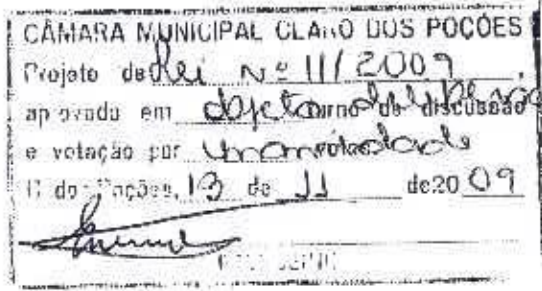 CÂMARA MUNICIPAL CLARO DOS POÇÕES
Projeto de Lei Nº 11/2009,
aprovado em turno de discussão
e votação por unanimidade
C. dos Poções, 13 de 11 de 20 09